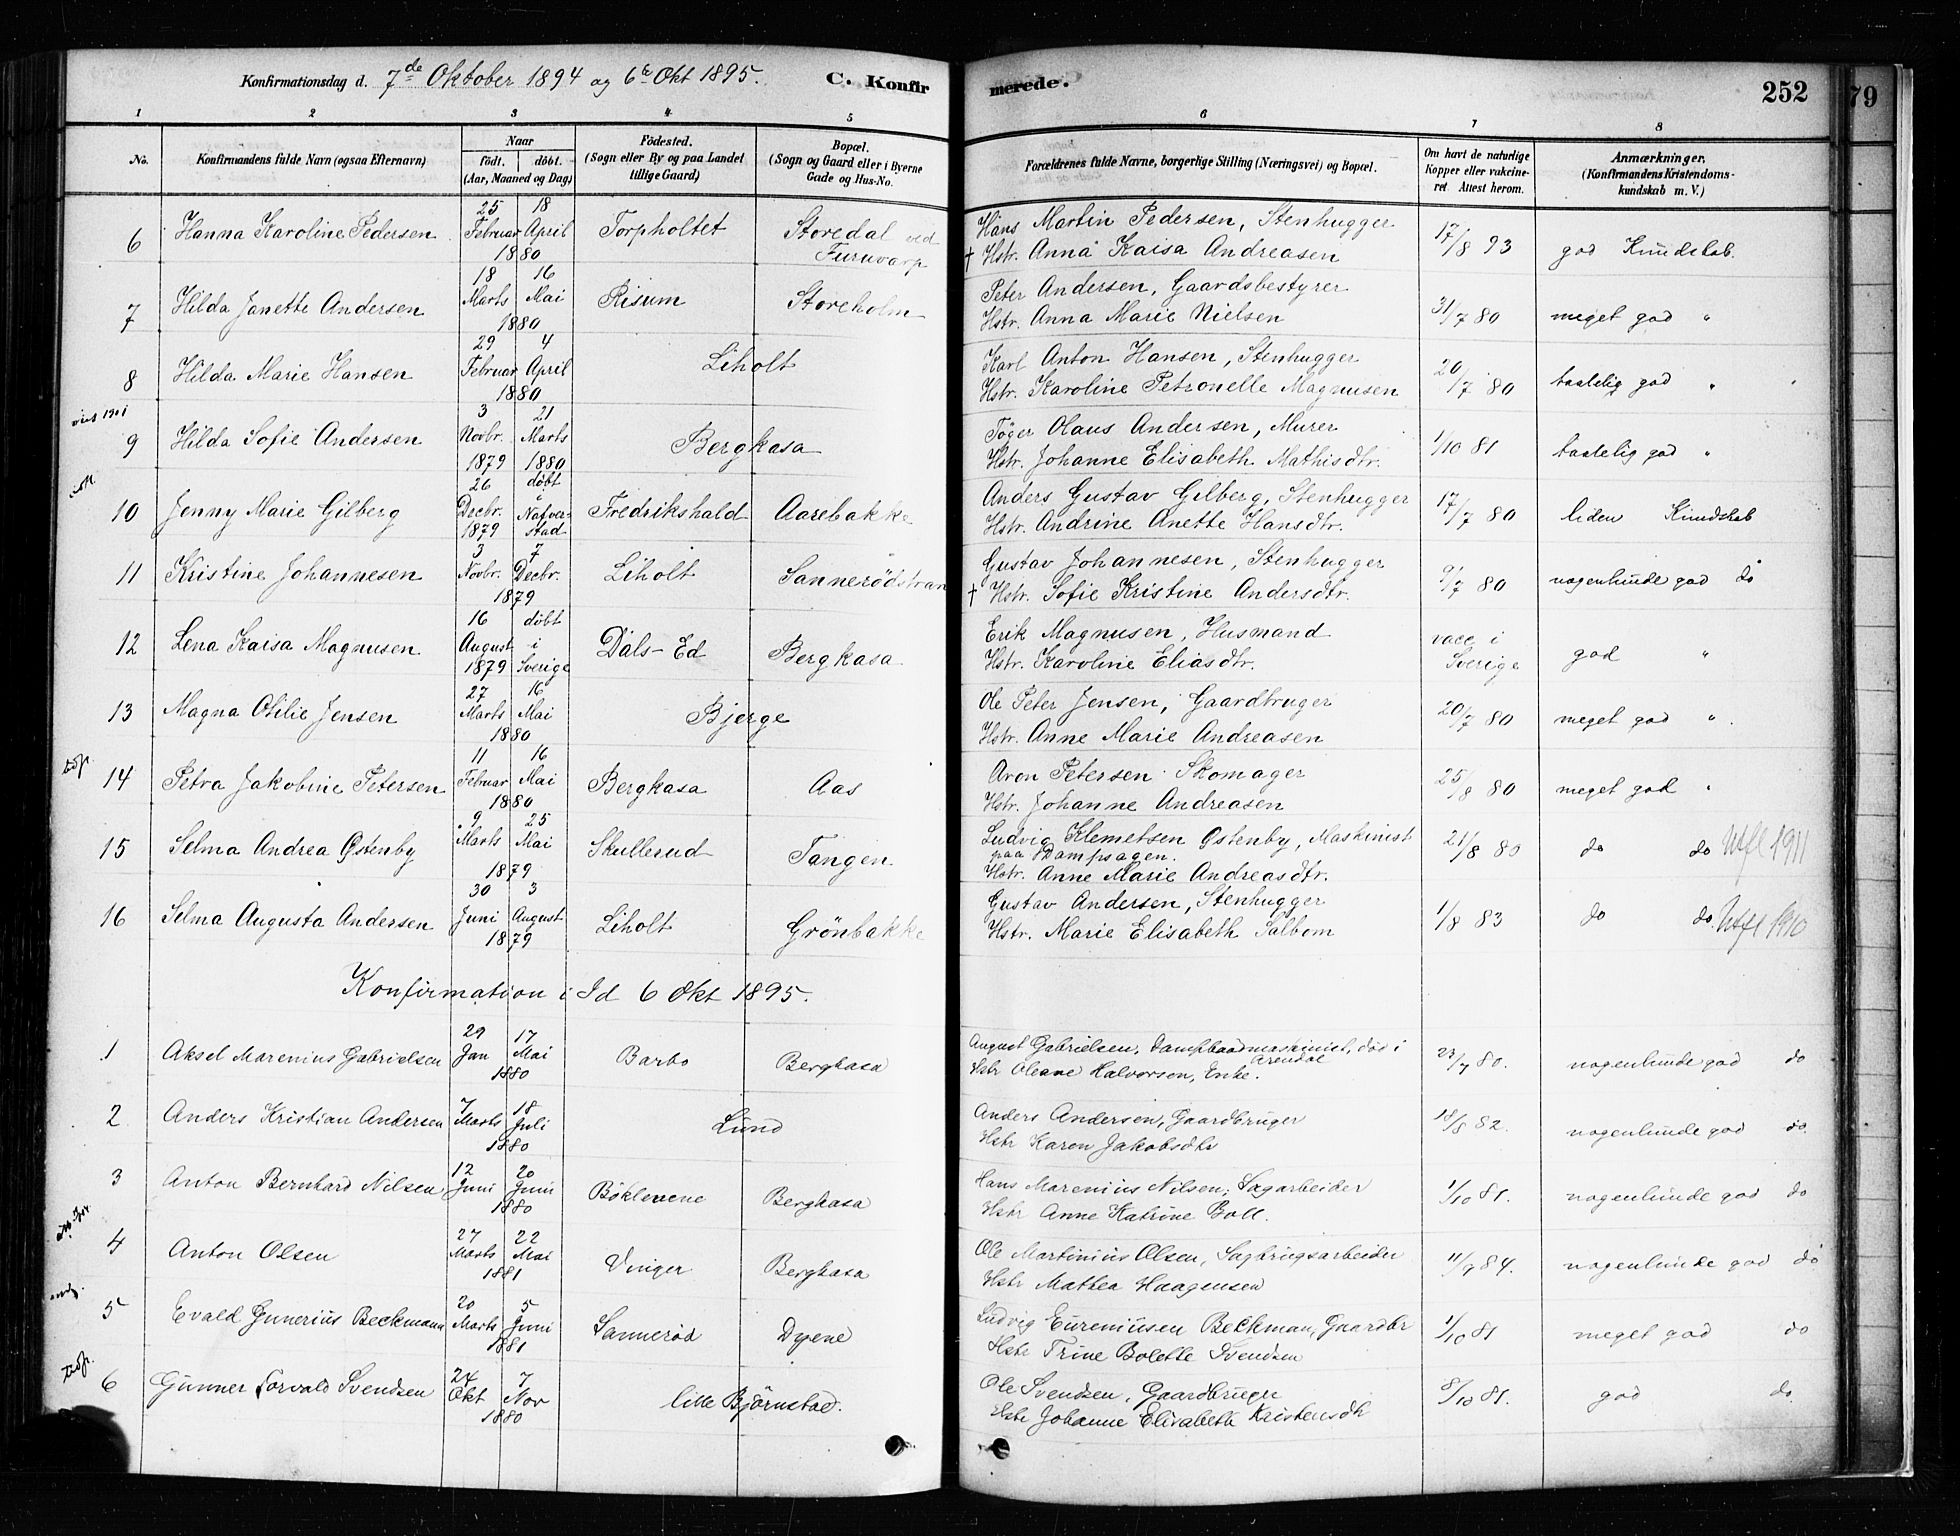 Konfirmationsdag d. 7de Oktober 1894 og 6te Okt 1895. C. Konfirmerede. 252
79
1 2 3 4 5 6 7 8
No. Konfirmandens fulde Navn (ogsaa Efternavn) Naar født. døbt. (Aar, Maaned og Dag) Fødested. (Sogn eller By og paa Landet tillige Gaard) Bopæl. (Sogn og Gaard eller i Byerne Gade og Hus-No. Forældrenes fulde Navne, borgerlige Stilling (Næringsvei) og Bopæl. Om havt de naturlige Kopper eller vakcineret Attest herom. Anmærkninger. (Konfirmandens Kristendomskundskab m. V.)
6 Hanna Karoline Pedersen 25 Februar 18 April 1880 Torpholtet Storedal ved Furuvarp Hans Martin Pedersen, Stenhugger
† Hstr. Anna Kaisa Andreasen 17/8 93 god Kundskab.
7 Hilda Janette Andersen 18 Marts 16 Mai 1880 Risum Storeholm Peter Andersen, Gaardsbestyrer
Hstr. Anna Marie Nielsen 31/7 80 meget god "
8 Hilda Marie Hansen 29 Februar 4 April 1880 Liholt Karl Anton Hansen, Stenhugger
Hstr. Karoline Petronelle Magnusen 20/7 80 taalelig god "
9 Hilda Sofie Andersen 3 Novbr. 1879 21 Marts 1880 Bergkasa Töger Olaus Andersen, Murer
Hstr. Johanne Elisabeth Mathisdtr. 1/10 81 taalelig god "
10 Jenny Marie Gilberg 26 Decbr. 1879 døbt i Nafverstad Fredrikshald Aarebakke Anders Gustav Gilberg, Stenhugger
Hstr. Andrine Anette Hansdtr. 17/7 80 liden Kundskab
11 Kristine Johannesen 3 Novbr. 7 Decbr. 1879 Liholt Sannerödstran Gustav Johannesen, Stenhugger
† Hstr. Sofie Kristine Andersdtr. 9/7 80 nogenlunde god do
12 Lena Kaisa Magnusen 16 August 1879 døbt i Sverige Dals-Ed Bergkasa Erik Magnusen, Husmand
Hstr. Karoline Eliasdtr. vacc. i Sverige god "
13 Magna Otilie Jensen 27 Marts 16 Mai 1880 Bjerge Ole Peter Jensen, Gaardbruger
Hstr. Anne Marie Andreasen 20/7 80 meget god "
14 Petra Jakobine Petersen 11 Februar 16 Mai 1880 Bergkasa Aas Aron Petersen Skomager
Hstr. Johanne Andreasen 25/8 80 meget god "
15 Selma Andrea Østenby 9 Marts 25 Mai 1879 Skullerud Tangen Ludvig Klemetsen Østenby, Maskinist
paa Dampsagen.
Hstr. Anne Marie Andreasdtr. 21/8 80 do do Utfl 1911
16 Selma Augusta Andersen 30 Juni 3 August 1879 Liholt Grönbakke Gustav Andersen, Stenhugger
Hstr. Marie Elisabeth Salbom 1/8 83 do do. Utfl 1910
Konfirmation i Id 6 Okt 1895.
1 Aksel Marenius Gabrielsen 29 Jan 17 Mai 1880 Barbo Bergkasa August Gabrielsen, Dampbaadmaskinist, død i Arendal
Hstr Oleane Halvorsen, Enke. 23/7 80. nogenlunde god do
2 Anders Kristian Andersen 7 Marts 18 Juli 1880 Lund Anders Andersen, Gaardbruger
Hstr Karen Jakobsdtr 18/8 82. nogenlunde god do.
3 Anton Bernhard Nilsen 12 Juni 20 Juni 1880 Böklevene Bergkasa Hans Marenius Nilsen, Sagarbeider
Hstr Anne Katrine Boll. 1/10 81. nogenlunde god do
4 Anton Olsen 27 Marts 22 Mai 1881 Vinger Bergkasa Ole Martinius Olsen, Sagbrugsarbeider
Hstr Mathea Haagensen 11/9 84. nogenlunde god do
5 Evald Gunerius Beckmann 20 Marts 5 Juni 1881 Sannerød Dyene Ludvig Eureniusen Beckman, Gaardbr
Hstr Trine Bolette Svendsen 1/10 81 meget god do
6 Gunner Torvald Svendsen 24 Okt 7 Nov 1880 lille Björnstad. Ole Svendsen, Gaardbruger
Hstr Johanne Elisabeth Kristensdtr 8/10 81. god do.